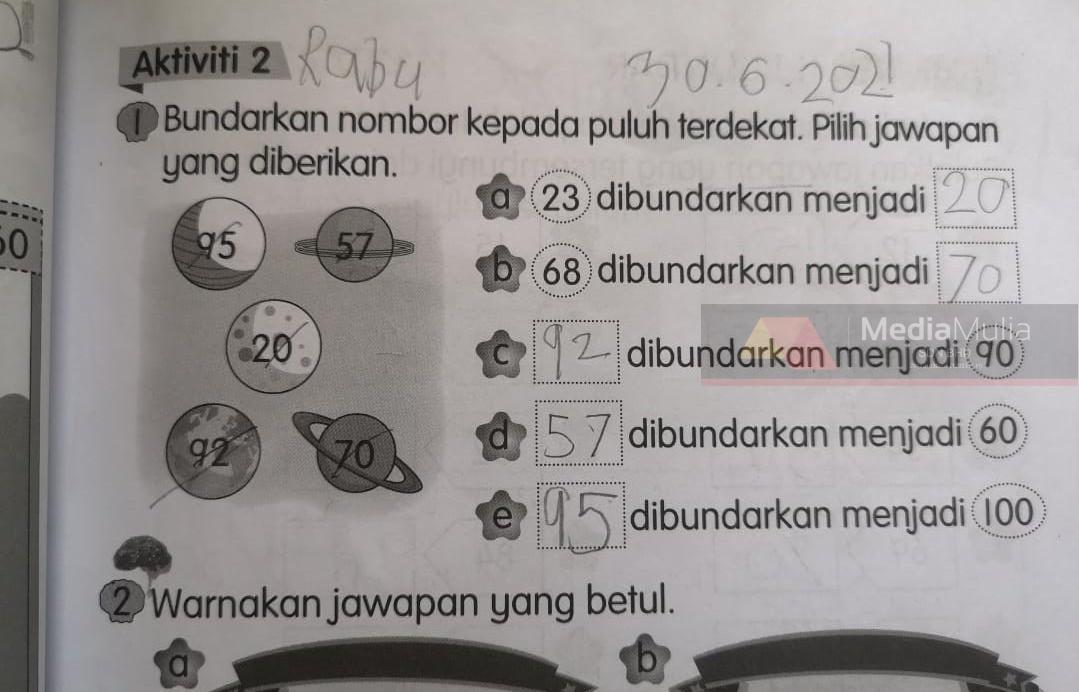 Aktiviti 2 Rabu 30.6.2021
1 Bundarkan nombor kepada puluh terdekat. Pilih jawapan
yang diberikan.
95 57
20
92 70
a 23 dibundarkan menjadi 20
b 68 dibundarkan menjadi 70
c 92 dibundarkan menjadi 90
d 57 dibundarkan menjadi 60
e 95 dibundarkan menjadi 100
MediaMulia
2 Warnakan jawapan yang betul.
a b